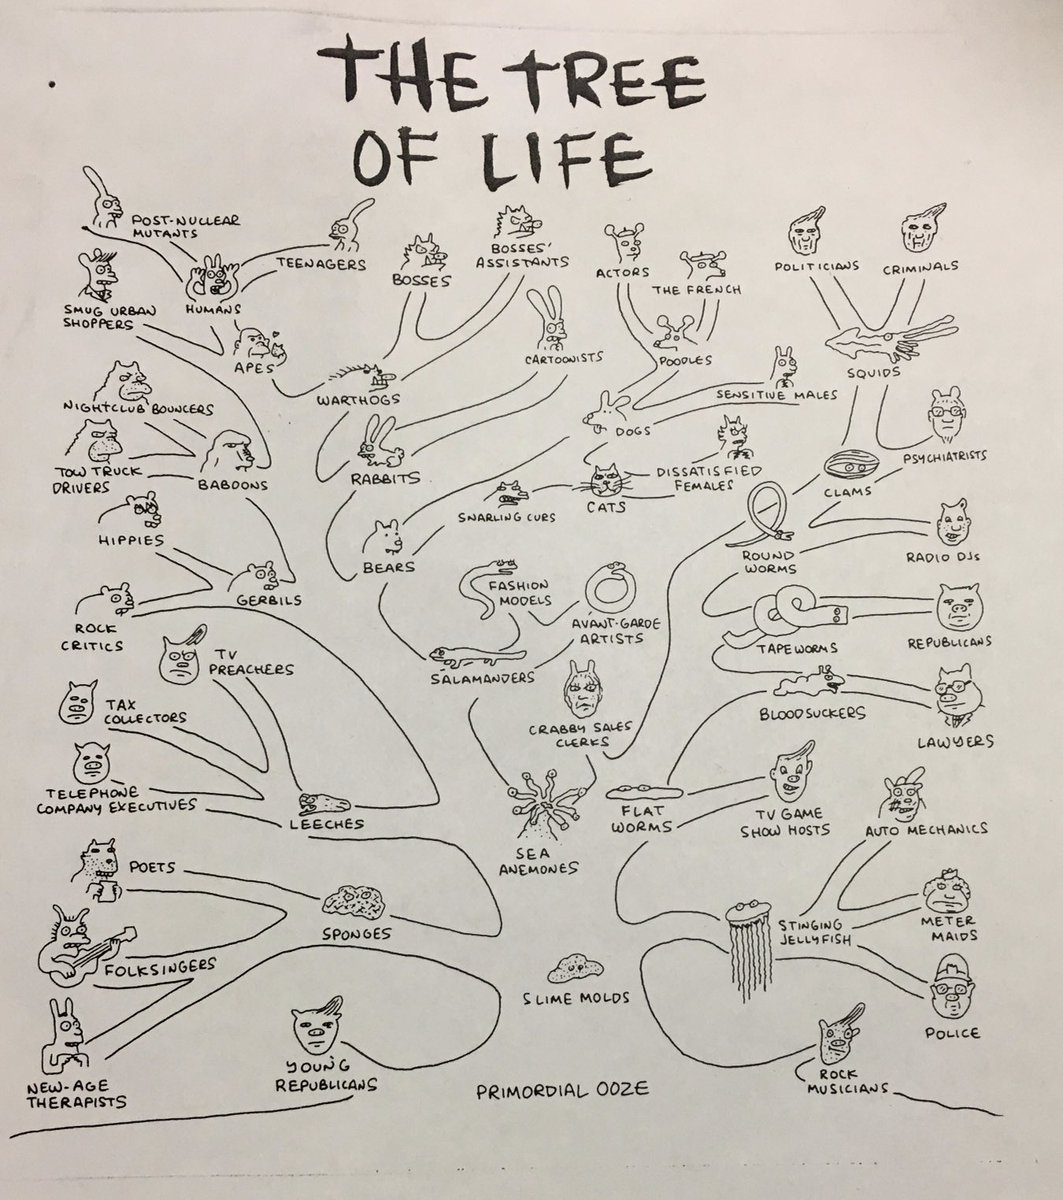 THE TREE
OF LIFE
POST-NUCLEAR
MUTANTS
TEENAGERS
BOSSES
BOSSES'
ASSISTANTS
ACTORS
THE FRENCH
POLITICIANS
CRIMINALS
SMUG URBAN
SHOPPERS
HUMANS
APES
WARTHOGS
CARTOONISTS
POODLES
SQUIDS
SENSITIVE MALES
NIGHTCLUB BOUNCERS
DOGS
TOW TRUCK
DRIVERS
BABOONS
RABBITS
DISSATISFIED
FEMALES
PSYCHIATRISTS
CLAMS
SNARLING CURS
CATS
HIPPIES
BEARS
ROUND
WORMS
RADIO DJs
GERBILS
FASHION
MODELS
AVANT-GARDE
ARTISTS
ROCK
CRITICS
TAPEWORMS
REPUBLICANS
TV
PREACHERS
SALAMANDERS
TAX
COLLECTORS
CRABBY SALES
CLERKS
BLOODSUCKERS
LAWYERS
TELEPHONE
COMPANY EXECUTIVES
LEECHES
FLAT
WORMS
TV GAME
SHOW HOSTS
AUTO MECHANICS
SEA
ANEMONES
POETS
SPONGES
STINGING
JELLYFISH
METER
MAIDS
FOLKSINGERS
SLIME MOLDS
POLICE
NEW-AGE
THERAPISTS
YOUNG
REPUBLICANS
PRIMORDIAL OOZE
ROCK
MUSICIANS